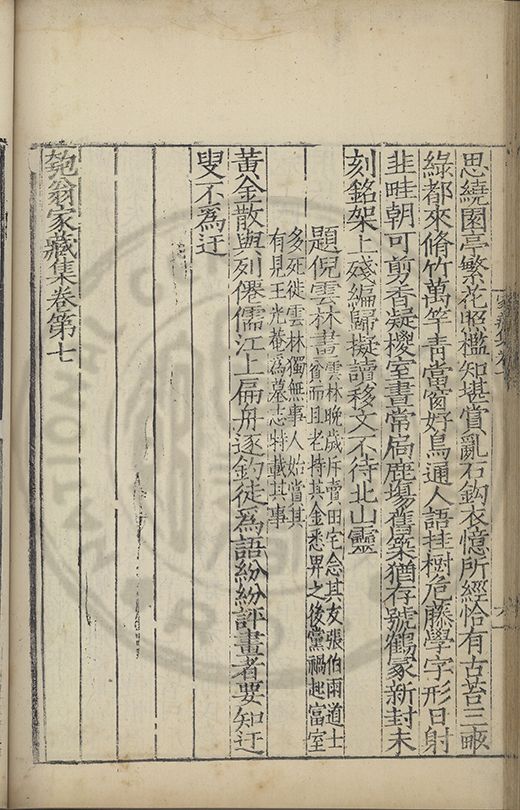 思繞園亭繁花照檻知堪賞亂石鈎衣憶所經恰有古苔三畞
綠都來脩竹萬竿青當窗好鳥通人語挂樹危藤學字形日射
韭畦朝可剪香凝椶室晝常扃鹿塲舊築猶存號鶴冢新封未
刻銘架上殘編歸擬讀移文不待北山靈
題倪雲林畫雲林晚歲斥賣田宅念其友張伯雨道士
貧而且老持其金悉畀之後黨禍起富室
多死徙雲林獨無事人始嘗其
有見王光菴爲墓志特載其事
黃金散與列僊儒江上扁舟逐釣徒爲語紛紛評畫者要知迂
叟不爲迂
匏翁家藏集卷第七